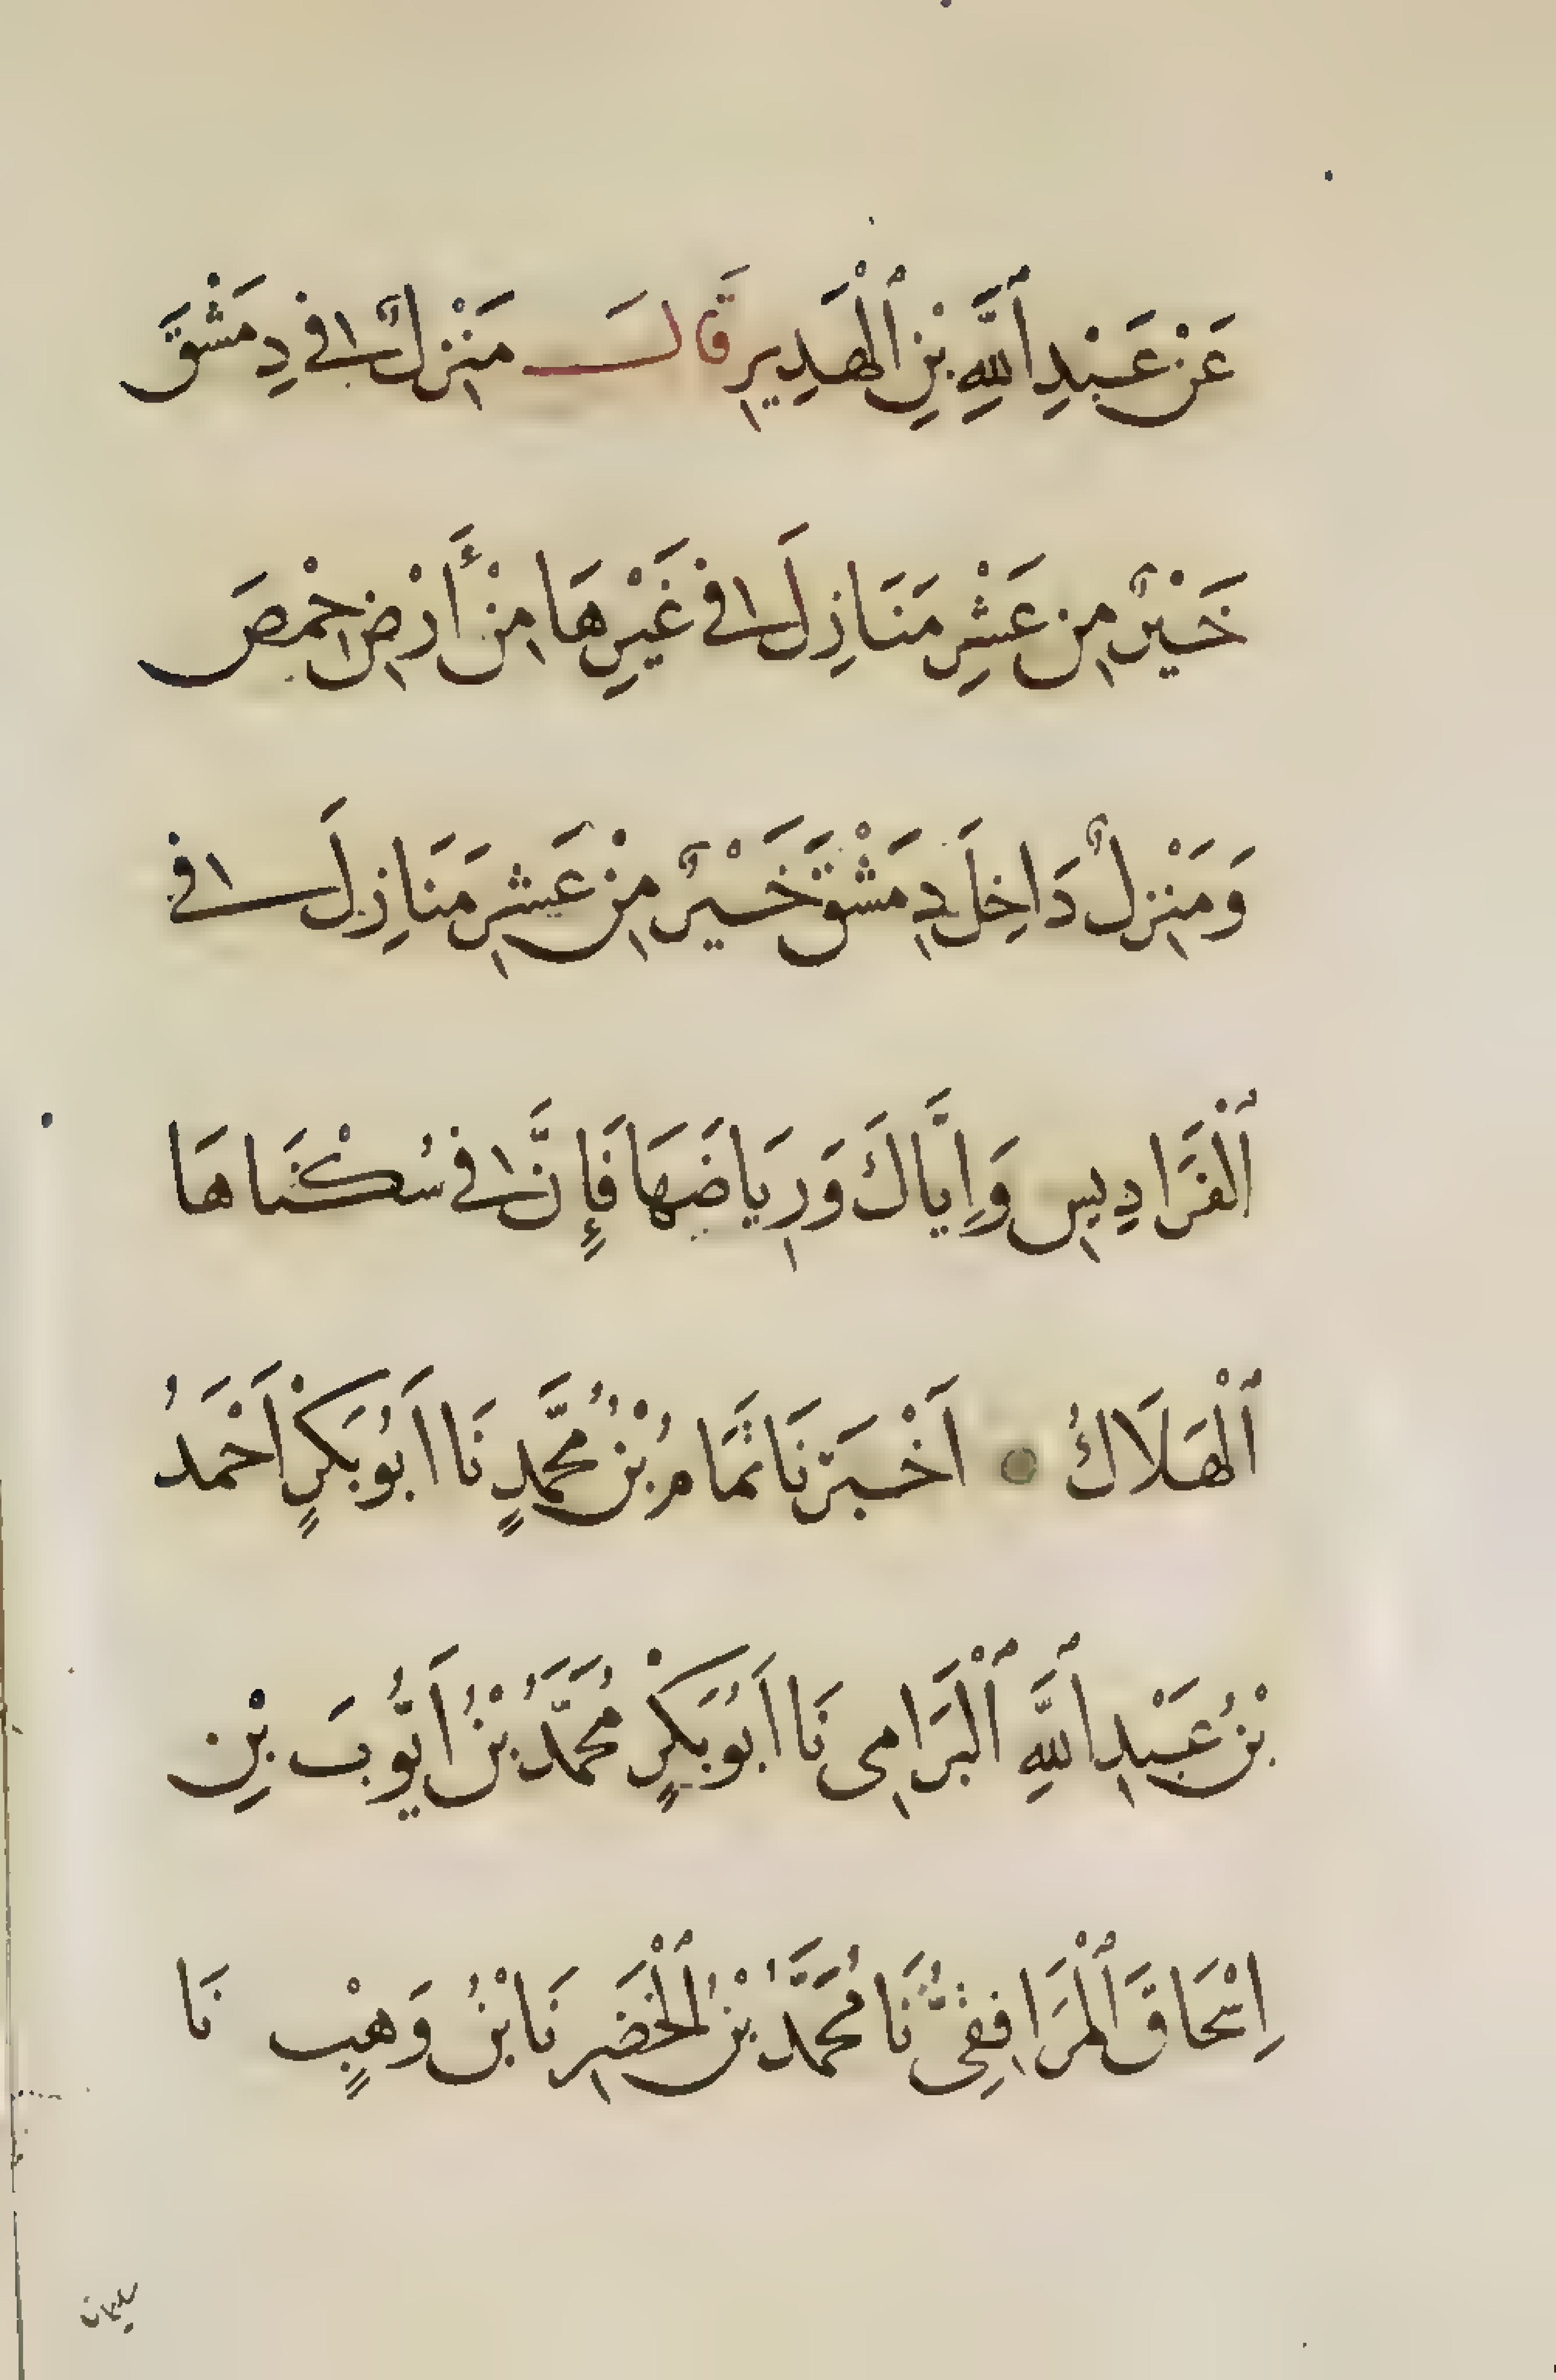 عَنْ عَبْدِ ٱللَّهِ بْنِ ٱلْهَدِيرِ قَالَ مَنْزِلٌ فِي دِمَشْقَ
خَيْرٌ مِن عَشْرِ مَنَازِلَ فِي غَيْرِهَا مِنْ أَرْضِ حِمْصَ
وَمَنْزِلٌ دَاخِلَ دِمَشْقَ خَيْرٌ مِنْ عَشرِ مَنَازِلَ فِي
ٱلْفَرَادِيسِ وَإِيَّاكَ وَرِيَاضَهَا فَإِنَّ فِي سُكْنَاهَا
ٱلْهَلَاكُ أَخْبَرَنَا تَمَّامُ بْنُ مُحَمَّدٍ نَا أَبُو بَكْرٍ أَحْمَدُ
بْنُ عَبْدِ ٱللَّهِ ٱلْبَرَامِى نَا أَبُو بَكْرٍ مُحَمَّدُ بْنُ أَيُّوبَ بْنِ
إِسْحَاقَ ٱلْمَرَافِقِىُّ نَا مُحَمَّدُ بْنُ ٱلْخَضِرِ نَا ابْنُ وَهْبٍ نَا